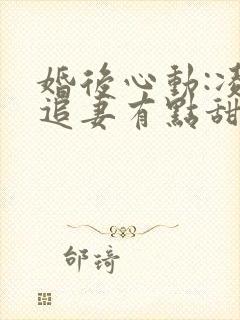 婚後心動:凌
追妻有點甜
邰琦